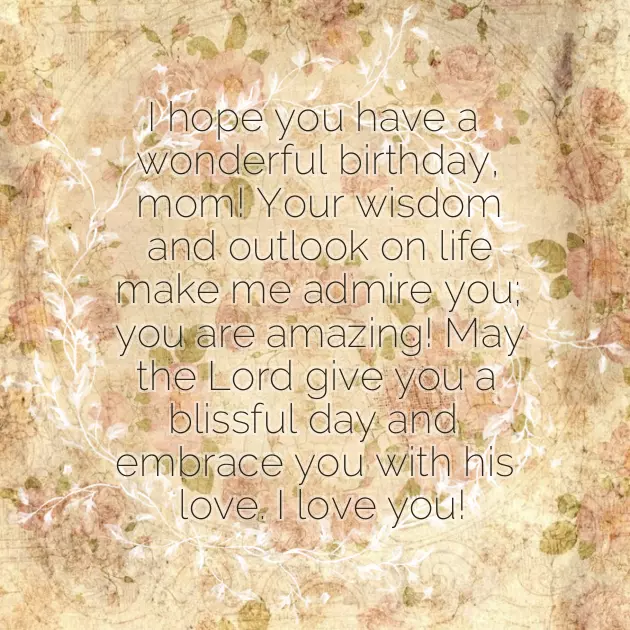 I hope you have a
wonderful birthday,
mom! Your wisdom
and outlook on life
make me admire you;
you are amazing! May
the Lord give you a
blissful day and
embrace you with his
love. I love you!